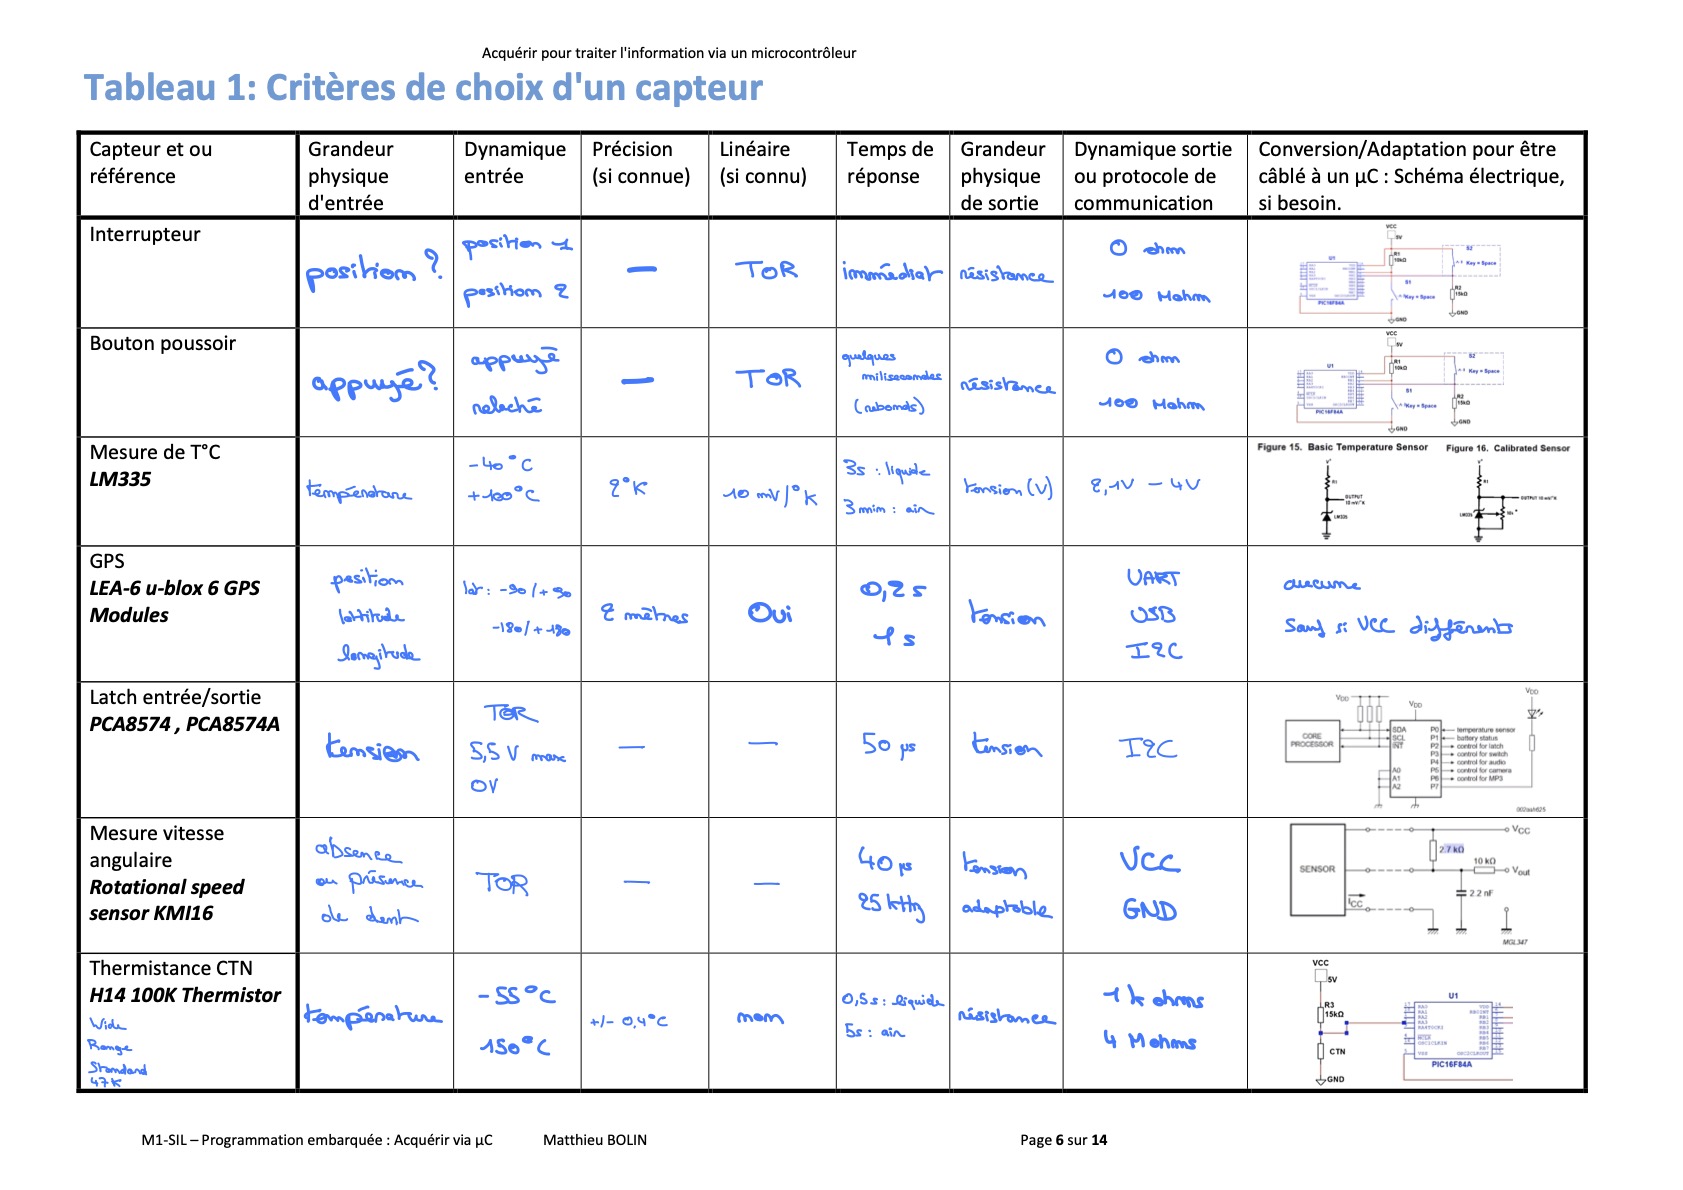 Acquérir pour traiter l'information via un microcontrôleur
Tableau 1: Critères de choix d'un capteur
Capteur et ou référence
Grandeur physique d'entrée
Dynamique entrée
Précision (si connue)
Linéaire (si connu)
Temps de réponse
Grandeur physique de sortie
Dynamique sortie ou protocole de communication
Conversion/Adaptation pour être câblé à un µC : Schéma électrique, si besoin.
Interrupteur
position ?
position 1
position 2
—
TOR
immédiat
résistance
0 ohm
100 Mohm
VCC
5V
R1
10kΩ
S2
Key = Space
U1
S1
Key = Space
R2
15kΩ
PIC16F84A
GND
GND
Bouton poussoir
appuyé ?
appuyé
relaché
—
TOR
quelques
milisecondes
(rebonds)
résistance
0 ohm
100 Mohm
VCC
5V
R1
10kΩ
S2
Key = Space
U1
S1
Key = Space
R2
15kΩ
PIC16F84A
GND
GND
Mesure de T°C
LM335
température
-40°C
+100°C
2°K
10 mV/°K
3s : liquide
3 min : air
tension (V)
2,1V - 4V
Figure 15. Basic Temperature Sensor
Figure 16. Calibrated Sensor
R1
OUTPUT
10 mV/°K
LM335
R1
OUTPUT 10 mV/°K
LM335
10k
GPS
LEA-6 u-blox 6 GPS
Modules
position
lattitude
longitude
lat : -90/+90
-180/+180
2 mètres
Oui
0,2s
1s
tension
UART
USB
I2C
aucune
Sauf si VCC différents
Latch entrée/sortie
PCA8574 , PCA8574A
tension
TOR
5,5 V max
0V
—
—
50 µs
tension
I2C
VDD
VDD
VDD
CORE
PROCESSOR
SDA
SCL
INT
A0
A1
A2
P0 temperature sensor
P1 battery status
P2 control for latch
P3 control for switch
P4 control for audio
P5 control for camera
P6 control for MP3
P7
Mesure vitesse
angulaire
Rotational speed
sensor KMI16
absence
ou présence
de dent
TOR
—
—
40 µs
25 kHz
tension
adaptable
VCC
GND
SENSOR
VCC
2.7 kΩ
10 kΩ
Vout
2.2 nF
ICC
MGL347
Thermistance CTN
H14 100K Thermistor
Wide
Range
Standard
47K
température
-55°C
150°C
+/- 0,4°C
non
0,5s : liquide
5s : air
résistance
1 k ohms
4 Mohms
VCC
5V
R3
15kΩ
CTN
GND
U1
PIC16F84A
M1-SIL – Programmation embarquée : Acquérir via µC Matthieu BOLIN Page 6 sur 14